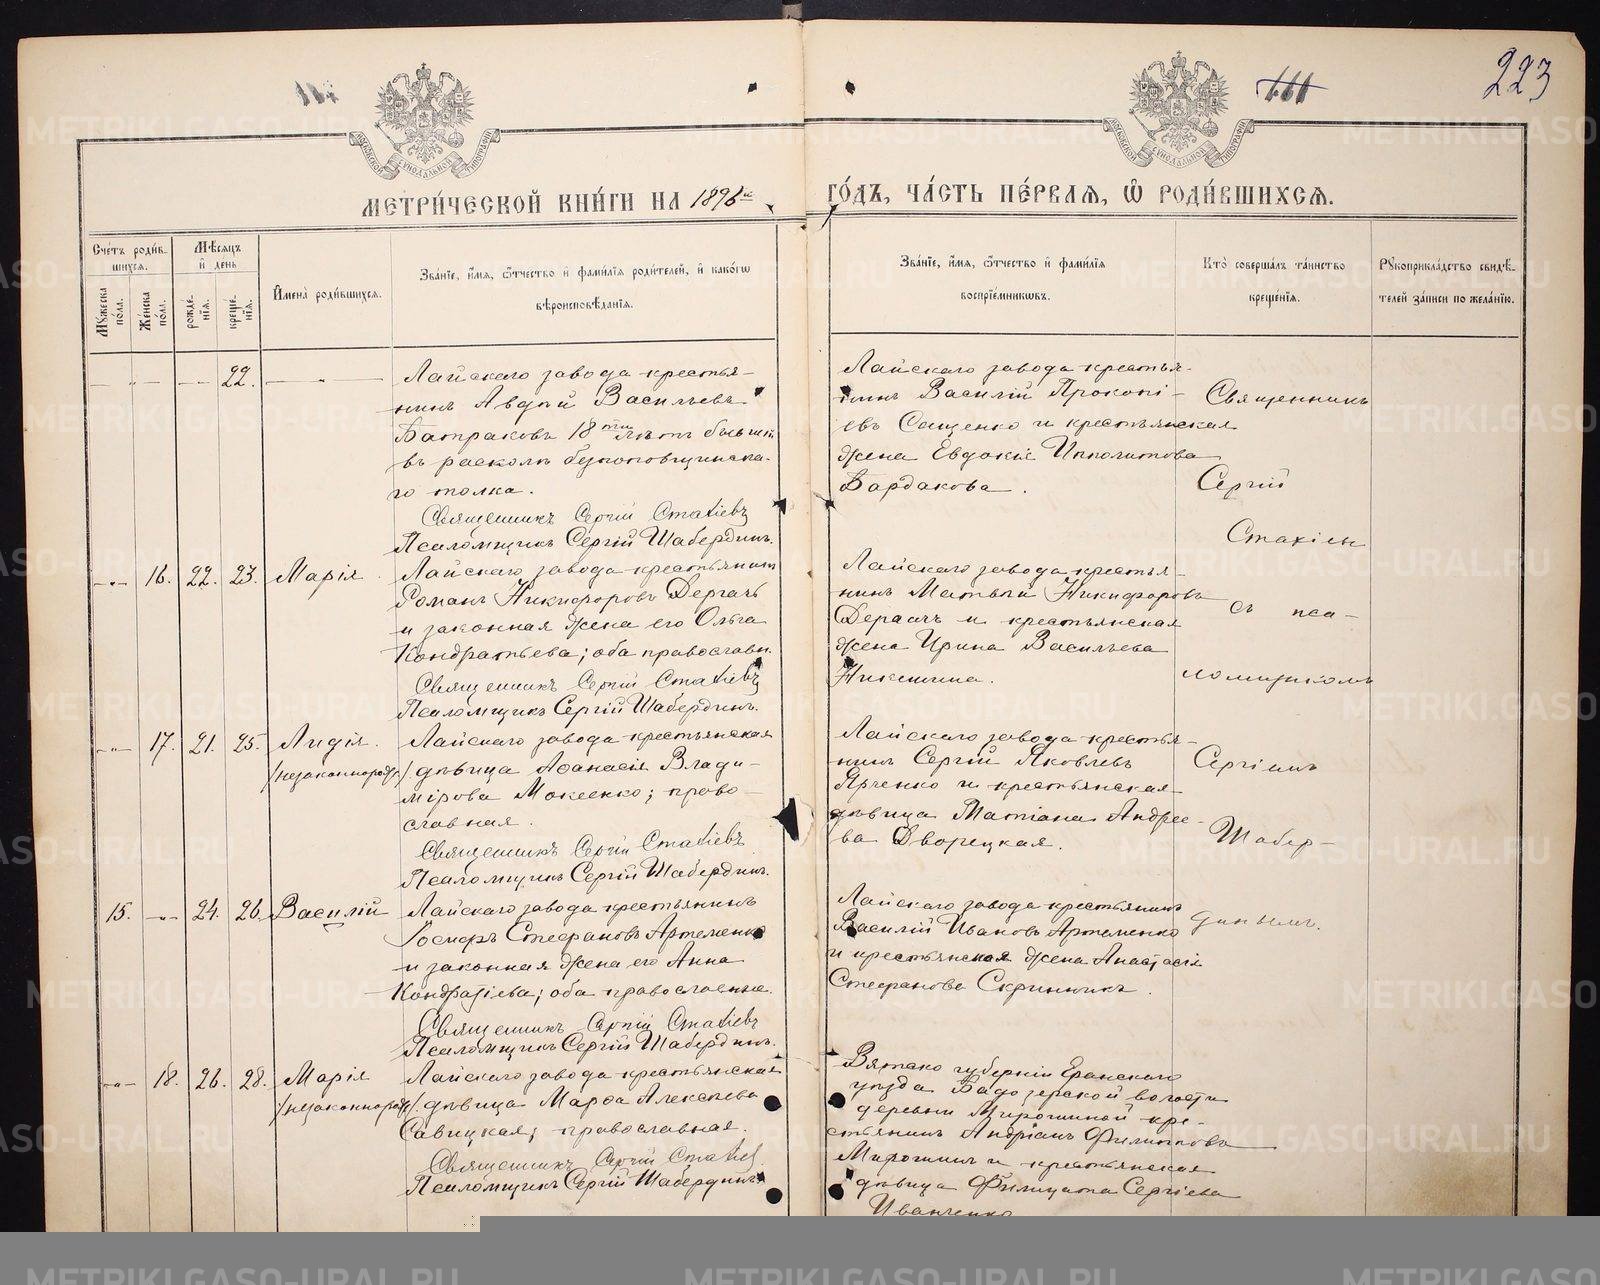 223
МЕТРИ́ЧЕСКОЙ КНИ́ГИ НА 1896й ГО́ДЪ, ЧА́СТЬ ПЕ́РВАЯ, Ѡ РОДИ́ВШИХСЯ.
Сче́тъ роди́в-
шихся.
Мꙋ́жеска
по́ла.
Же́нска
по́ла.
Мѣ́сяцъ
и́ день
рожде́-
нїя.
креще́-
нїя.
И҆мена̀ роди́вшихся.
Зва́нїе, и҆́мя, ѻ҆́тчество и҆ фами́лїя роди́телей, и҆ како́гѡ
вѣроисповѣ́данїя.
Зва́нїе, и҆́мя, ѻ҆́тчество и҆ фами́лїя
воспрїе́мникѡвъ.
Кто̀ соверша́лъ та́инство
креще́нїя.
Рꙋкоприкла́дство свидѣ́-
телей за́писи по жела́нїю.
22.
Лайскаго завода крестья-
нинъ Авдѣй Васильевъ
Батраковъ 18ти лѣтъ бывшій
въ расколѣ безпоповщинска-
го толка.
Священникъ Сергій Стахіевъ
Псаломщикъ Сергій Шабердинъ.
Лайскаго завода крестья-
нинъ Василій Прокопі-
евъ Сащенко и крестьянская
жена Евдокія Ипполитова
Бардакова.
Священникъ
Сергій
Стахіевъ
16. 22. 23. Марія
Лайскаго завода крестьянинъ
Романъ Никифоровъ Дергачъ
и законная жена его Ольга
Кондратьева; оба православн.
Священникъ Сергій Стахіевъ
Псаломщикъ Сергій Шабердинъ.
Лайскаго завода крестья-
нинъ Матвѣй Никифоровъ
Дергачъ и крестьянская
жена Ирина Васильева
съ пса-
ломщикомъ
17. 21. 25. Лидія.
/незаконнорожд./
Лайскаго завода крестьянская
дѣвица Аѳанасія Влади-
мірова Мокеенко; право-
славная.
Священникъ Сергій Стахіевъ
Псаломщикъ Сергій Шабердинъ.
Лайскаго завода крестья-
нинъ Сергій Яковлевъ
Ярченко и крестьянская
дѣвица Татіана Андрее-
ва Дворецкая.
Сергіемъ
Шабер-
15. 24. 26. Василій
Лайскаго завода крестьянинъ
Іосифъ Стефановъ Артеменко
и законная жена его Анна
Кондратіева; оба православные.
Священникъ Сергій Стахіевъ
Псаломщикъ Сергій Шабердинъ.
Лайскаго завода крестьянинъ
Василій Ивановъ Артеменко
и крестьянская жена Анастасія
Стефанова Скринникъ.
динымъ.
18. 26. 28. Марія
/незаконнорожд./
Лайскаго завода крестьянская
дѣвица Марѳа Алексѣева
Савицкая; православная.
Священникъ Сергій Стахіев
Псаломщикъ Сергій Шабердинъ.
Вятской губерніи Яранскаго
уѣзда волости
деревни Мирошиной кре-
стьянинъ Андріанъ Филипповъ
Мирошинъ и крестьянская
дѣвица Филицата Сергіева
Иванченко
METRIKI.GASO-URAL.RU